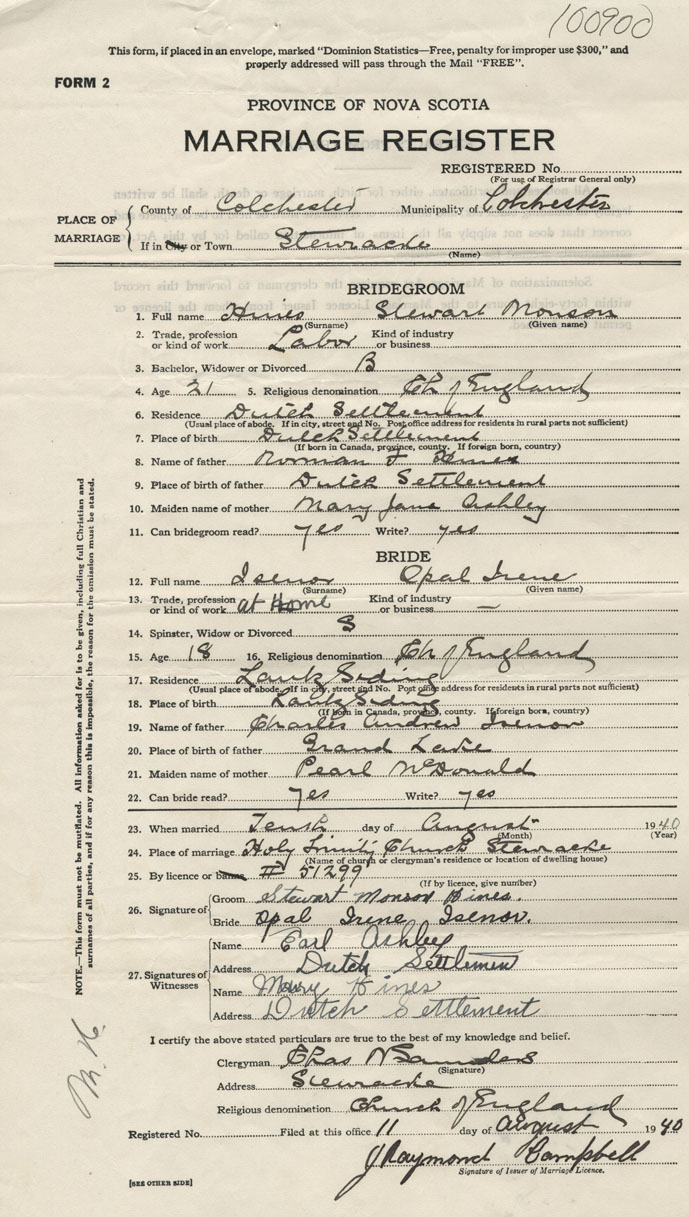 100900
This form, if placed in an envelope, marked "Dominion Statistics—Free, penalty for improper use $300," and
properly addressed will pass through the Mail "FREE".
FORM 2
PROVINCE OF NOVA SCOTIA
MARRIAGE REGISTER
REGISTERED No.
(For use of Registrar General only)
PLACE OF MARRIAGE
County of Colchester Municipality of Colchester
If in City or Town Stewiacke
(Name)
BRIDEGROOM
1. Full name Hines Stewart Monson
(Surname) (Given name)
2. Trade, profession or kind of work Labor Kind of industry or business
3. Bachelor, Widower or Divorced B
4. Age 21 5. Religious denomination Ch of England
6. Residence Dutch Settlement
(Usual place of abode. If in city, street and No. Post office address for residents in rural parts not sufficient)
7. Place of birth Dutch Settlement
(If born in Canada, province, county. If foreign born, country)
8. Name of father Norman F Hines
9. Place of birth of father Dutch Settlement
10. Maiden name of mother Mary Jane Ashley
11. Can bridegroom read? yes Write? yes
BRIDE
12. Full name Isenor Opal Irene
(Surname) (Given name)
13. Trade, profession or kind of work at Home Kind of industry or business —
14. Spinster, Widow or Divorced S
15. Age 18 16. Religious denomination Ch of England
17. Residence Lantz Siding
(Usual place of abode. If in city, street and No. Post office address for residents in rural parts not sufficient)
18. Place of birth Lantz Siding
(If born in Canada, province, county. If foreign born, country)
19. Name of father Charles Andrew Isenor
20. Place of birth of father Grand Lake
21. Maiden name of mother Pearl McDonald
22. Can bride read? yes Write? yes
23. When married Tenth day of August 1940
(Month) (Year)
24. Place of marriage Holy Trinity Church Stewiacke
(Name of church or clergyman's residence or location of dwelling house)
25. By licence or banns # 51299
(If by licence, give number)
26. Signature of
Groom Stewart Monson Hines.
Bride Opal Irene Isenor.
27. Signatures of Witnesses
Name Earl Ashley
Address Dutch Settlement
Name Mary Hines
Address Dutch Settlement
I certify the above stated particulars are true to the best of my knowledge and belief.
Clergyman Chas N Saunders
(Signature)
Address Stewiacke
Religious denomination Church of England
Registered No. Filed at this office 11 day of August 1940
J Raymond Campbell
Signature of Issuer of Marriage Licence.
[SEE OTHER SIDE]
NOTE.—This form must not be mutilated. All information asked for is to be given, including full Christian and
surnames of all parties, and if for any reason this is impossible, the reason for the omission must be stated.
M. H.